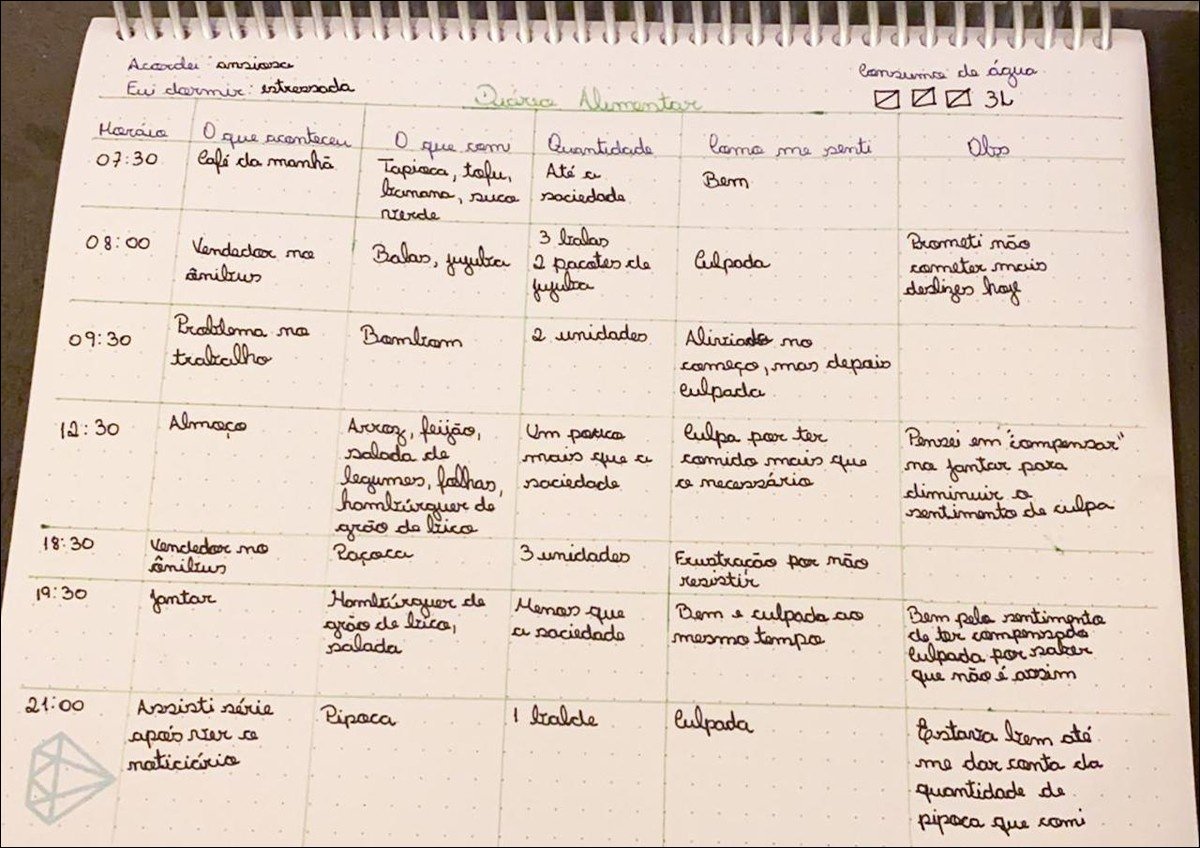 Acordei: ansiosa
Fui dormir: estressada
Consumo de água
3L
Diário Alimentar
Horário
O que aconteceu
O que comi
Quantidade
Como me senti
Obs
07:30
Café da manhã
Tapioca, tofu,
banana, suco
verde
Até a
saciedade
Bem
08:00
Vendedor no
ônibus
Balas, jujuba
3 balas
2 pacotes de
jujuba
Culpada
Prometi não
cometer mais
deslizes hoje
09:30
Problema no
trabalho
Bombom
2 unidades
Aliviada no
começo, mas depois
culpada
12:30
Almoço
Arroz, feijão,
salada de
legumes, folhas,
hambúrguer de
grão de bico
Um pouco
mais que a
saciedade
Culpa por ter
comido mais que
o necessário
Pensei em "compensar"
no jantar para
diminuir o
sentimento de culpa
18:30
Vendedor no
ônibus
Paçoca
3 unidades
Frustração por não
resistir
19:30
Jantar
Hambúrguer de
grão de bico,
salada
Menos que
a saciedade
Bem e culpada ao
mesmo tempo
Bem pelo sentimento
de ter compensado
Culpada por saber
que não é assim
21:00
Assisti série
após ver o
noticiário
Pipoca
1 balde
Culpada
Estava bem até
me dar conta da
quantidade de
pipoca que comi